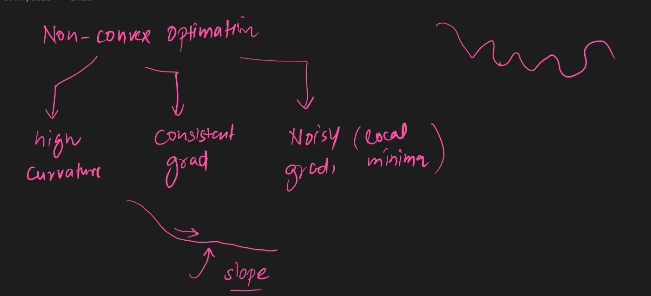 Non-convex Optimation
high
curvature
Consistent
grad
Noisy (local
grad, minima)
slope